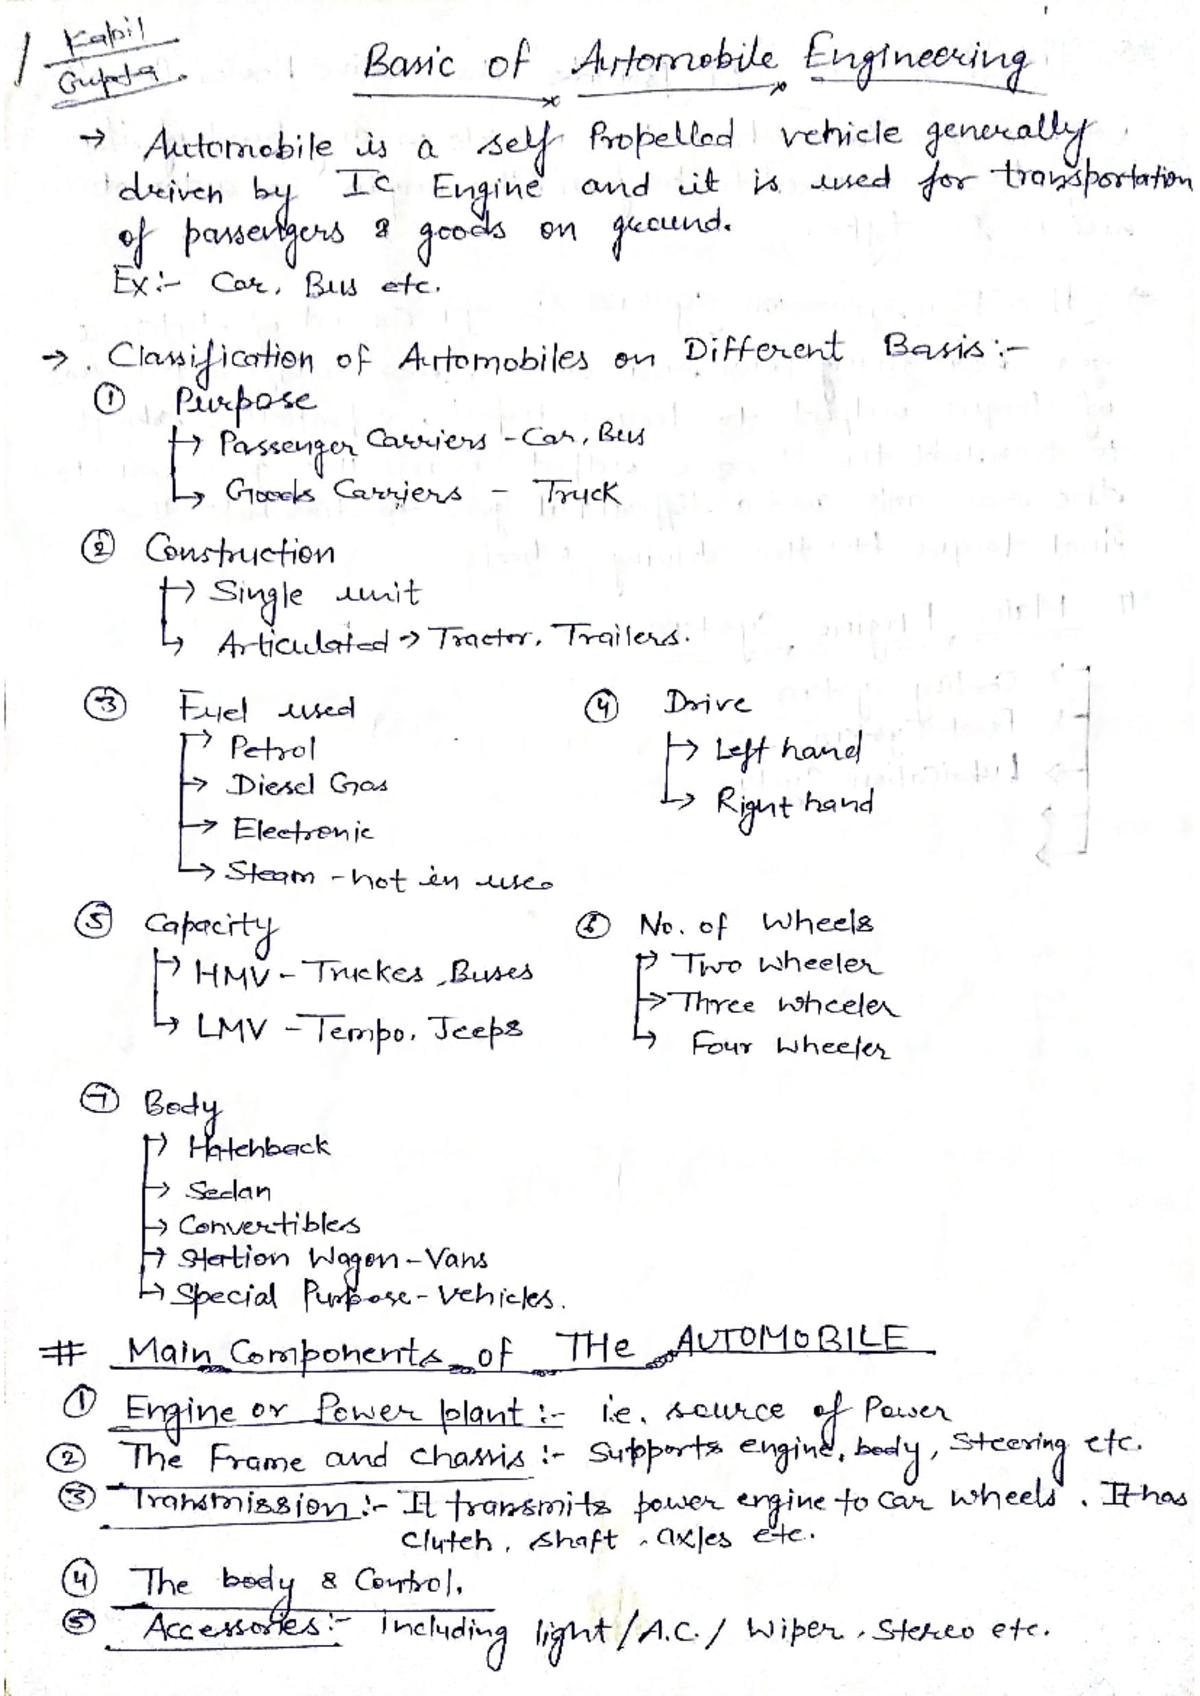 Kapil
Gupta
Basic of Automobile Engineering
→ Automobile is a self Propelled vehicle generally
driven by IC Engine and it is used for transportation
of passengers & goods on ground.
Ex:- Car, Bus etc.
→ Classification of Automobiles on Different Basis:-
① Purpose
→ Passenger Carriers - Car, Bus
→ Goods Carriers - Truck
② Construction
→ Single unit
→ Articulated → Tractor, Trailers.
③ Fuel used
→ Petrol
→ Diesel Gas
→ Electronic
→ Steam - not in use
④ Drive
→ Left hand
→ Right hand
⑤ Capacity
→ HMV - Truckes, Buses
→ LMV - Tempo, Jeeps
⑥ No. of Wheels
→ Two wheeler
→ Three wheeler
→ Four wheeler
⑦ Body
→ Hatchback
→ Sedan
→ Convertibles
→ Station Wagon - Vans
→ Special Purpose - vehicles.
# Main Components of THe AUTOMOBILE
① Engine or Power plant :- i.e. source of Power
② The Frame and chassis :- Supports engine, body, Steering etc.
③ Transmission :- It transmits power engine to car wheels. It has
clutch, shaft, axles etc.
④ The body & Control.
⑤ Accessories :- including light/A.C./ Wiper, Stereo etc.